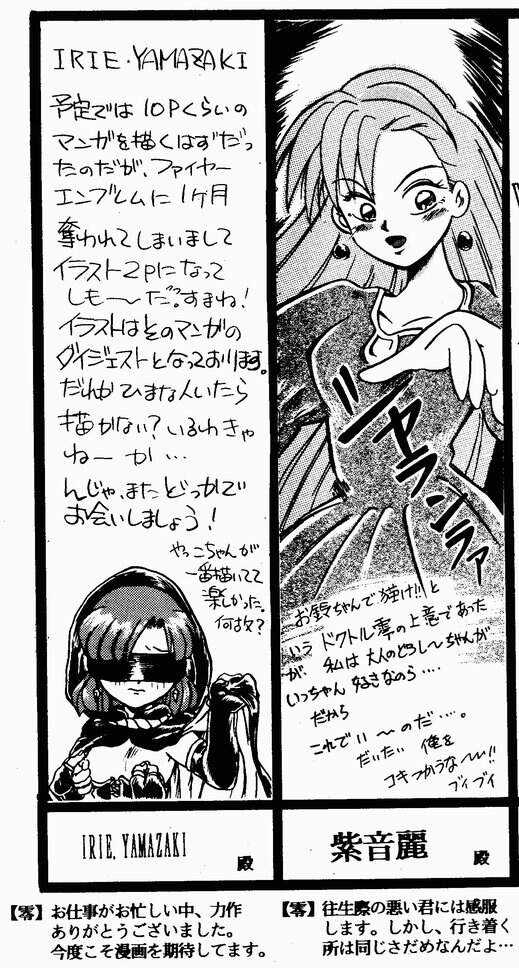 IRIE・YAMAZAKI
予定では 10Pくらいの
マンガを描くはずだっ
たのだが、ファイヤー
エンブレムに 1ヶ月
奪われてしまいまして
イラスト2Pになって
しも〜だ?すまね!
イラストはそのマンガの
ダイジェストとなっております。
だれか ひまな人いたら
描かない? いるわきゃ
ねーか…
んじゃ、またどっかで
お会いしましょう!
やっこちゃんが
一番描いてて
楽しかった。
何故?
IRIE, YAMAZAKI
殿
【零】お仕事がお忙しい中、力作
ありがとうございました。
今度こそ漫画を期待してます。
シャランラァ
お鈴ちゃんで抜け!! と
いう ドクトル零の上意であった
が、私は大人のどろし〜ちゃんが
いっちゃん 好きなのら‥‥
だから
これでい〜のだ‥‥。
だいたい 俺を
コキつかうな〜!!
ブィブィ
紫音麗
殿
【零】往生際の悪い君には感服
します。しかし、行き着く
所は同じさだめなんだよ…